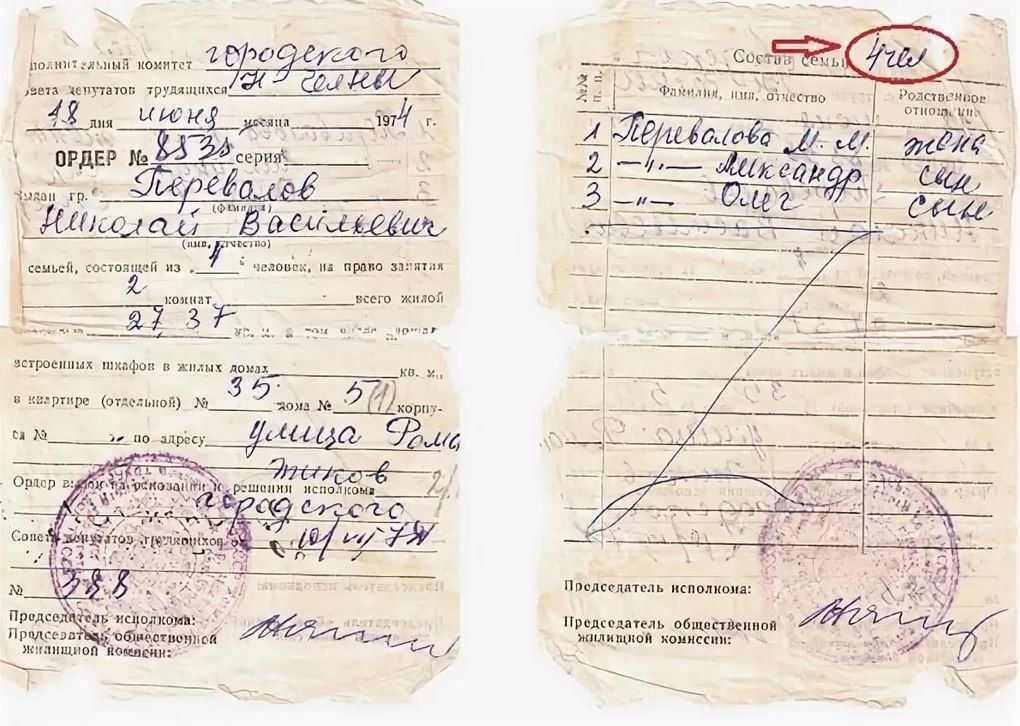 полнительный комитет городского
Н-Челны
овета депутатов трудящихся
18 дня июня месяца 1974 г.
ОРДЕР № серия
Выдан гр. Перевалов
(фамилия)
Николай Васильевич
(имя, отчество)
семьей, состоящей из 4 человек, на право занятия
2
комнат всего жилой
27 37
встроенных шкафов в жилых домах кв. м.,
в квартире (отдельной) № 35 дома № 5 (1) корпу-
са № по адресу улица Рома
Ордер выдан на основании решения исполкома
городского
Совета депутатов трудящихся
№ 388
Председатель исполкома:
Председатель общественной
жилищной комиссии:
Состав семьи 4 чел
№№ п. п.
Фамилия, имя, отчество
Родственное отношение
1 Перевалова М. М. жена
2 —"— Александр сын
3 —"— Олег сын
Председатель исполкома:
Председатель общественной
жилищной комиссии: